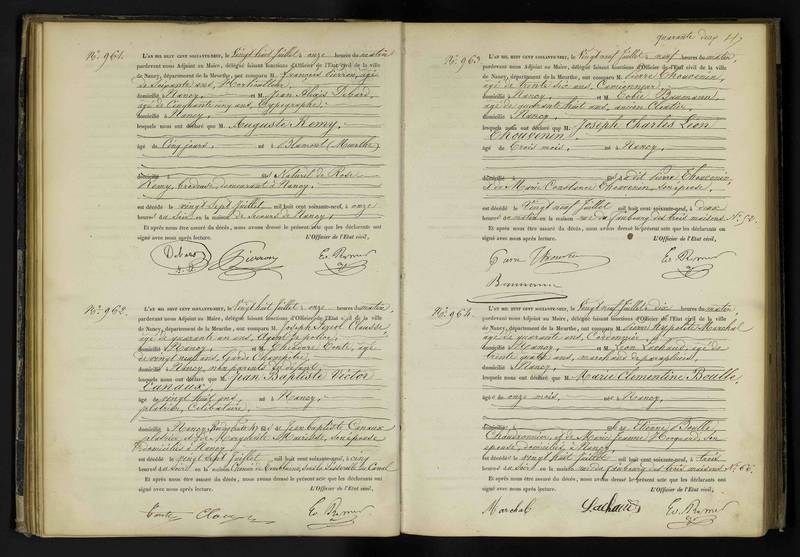 quarante deux
Nº. 961.
L'AN MIL HUIT CENT SOIXANTE-NEUF, le Vingt huit Juillet à onze heures du matin,
pardevant nous Adjoint au Maire, délégué faisant fonctions d'Officier de l'Etat civil de la ville
de Nancy, département de la Meurthe, ont comparu M. François âgé
de Soixante ans, Horticulteur,
domicilié à Nancy, et M. Jean Alexis
âgé de Cinquante cinq ans, Typographe,
domicilié à Nancy,
lesquels nous ont déclaré que M. Auguste Remy,
âgé de Cinq jours, né à Blamont (Meurthe)
domicilié à fils Naturel de Rose
Remy, Brodeuse, demeurant à Nancy,
est décédé le vingt sept Juillet mil huit cent soixante-neuf, à onze
heures du soir en la maison de secours de Nancy,
Et après nous être assuré du décès, nous avons dressé le présent acte que les déclarants ont
signé avec nous après lecture. L'Officier de l'Etat civil,
Nº. 962.
L'AN MIL HUIT CENT SOIXANTE-NEUF, Vingt huit Juillet à onze heures du matin,
pardevant nous Adjoint au Maire, délégué faisant fonctions d'Officier de l'Etat civil de la ville
de Nancy, département de la Meurthe, ont comparu M. Joseph
âgé de quarante un ans, Agent de police,
domicilié à Nancy, et M. Théodore Conte, âgé
de vingt neuf ans, Garde Champêtre,
domicilié à Nancy, non parents du défunt,
lesquels nous ont déclaré que M. Jean Baptiste Victor
Canaux,
âgé de vingt huit ans, né à Nancy,
plâtrier, Célibataire,
domicilié à Nancy, fils de Jean Baptiste Canaux
plâtrier et de Marguerite son épouse
domiciliés à Nancy
est décédé le vingt sept Juillet mil huit cent soixante-neuf, à cinq
heures du soir en la maison
Et après nous être assuré du décès, nous avons dressé le présent acte que les déclarants ont
signé avec nous après lecture. L'Officier de l'Etat civil,
Nº. 963.
L'AN MIL HUIT CENT SOIXANTE-NEUF, le Vingt neuf Juillet à neuf heures du matin,
pardevant nous Adjoint au Maire, délégué faisant fonctions d'Officier de l'Etat civil de la ville
de Nancy, département de la Meurthe, ont comparu M. Pierre Thouvenin,
âgé de trente six ans, Camionneur,
domicilié à Nancy, et M. Baumann,
âgé de quarante huit ans, ancien
domicilié à Nancy,
lesquels nous ont déclaré que M. Joseph Charles Léon
Thouvenin,
âgé de Trois mois, né à Nancy,
domicilié à fils dudit Pierre Thouvenin,
et de Marie Constance Thouvenin, son épouse,
est décédé le Vingt neuf Juillet mil huit cent soixante-neuf, à deux
heures du matin en la maison rue du faubourg des trois maisons Nº. 50.
Et après nous être assuré du décès, nous avons dressé le présent acte que les déclarants ont
signé avec nous après lecture. L'Officier de l'Etat civil,
Baumann
Nº. 964.
L'AN MIL HUIT CENT SOIXANTE-NEUF, le Vingt neuf Juillet à dix heures du matin,
pardevant nous Adjoint au Maire, délégué faisant fonctions d'Officier de l'Etat civil de la ville
de Nancy, département de la Meurthe, ont comparu M. Pierre Hypolite Marchal
âgé de quarante ans, Cordonnier,
domicilié à Nancy, et M. Léon Lachaud, âgé de
trente quatre ans, marchand de parapluies,
domicilié à Nancy,
lesquels nous ont déclaré que M. Marie Clementine Boulle,
âgée de onze mois, née à Nancy,
domicilié à fille de Etienne Boulle,
Chaudronnier, et de Marie Jeanne son
épouse domiciliés à Nancy,
est décédée le vingt huit Juillet mil huit cent soixante-neuf, à trois
heures du soir en la maison rue du faubourg des trois maisons Nº. 66.
Et après nous être assuré du décès, nous avons dressé le présent acte que les déclarants ont
signé avec nous après lecture. L'Officier de l'Etat civil,
Marchal Lachaud